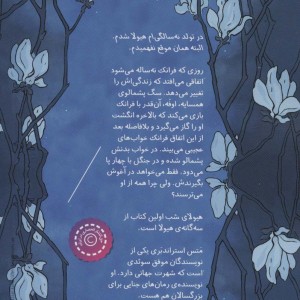 در تولد نه‌سالگی‌ام هیولا شدم.
البته همان موقع نفهمیدم.
روزی که فرانک نه‌ساله می‌شود
اتفاقی می‌افتد که زندگی‌اش را
تغییر می‌دهد. سگ پشمالوی
همسایه، اوفه، آن‌قدر با فرانک
بازی می‌کند که بالاخره انگشت
او را گاز می‌گیرد و بلافاصله بعد
از این اتفاق فرانک خواب‌های
عجیبی می‌بیند. در خواب بدنش
پشمالو شده و در جنگل با چهار پا
می‌دود. فقط می‌خواهد در آغوش
بگیرندش. ولی چرا همه از او
می‌ترسند؟
هیولای شب اولین کتاب از
سه‌گانه‌ی هیولا است.
متس استراندبری یکی از
نویسندگان موفق سوئدی
است که شهرت جهانی دارد. او
نویسنده‌ی رمان‌های جنایی برای
بزرگسالان هم هست.